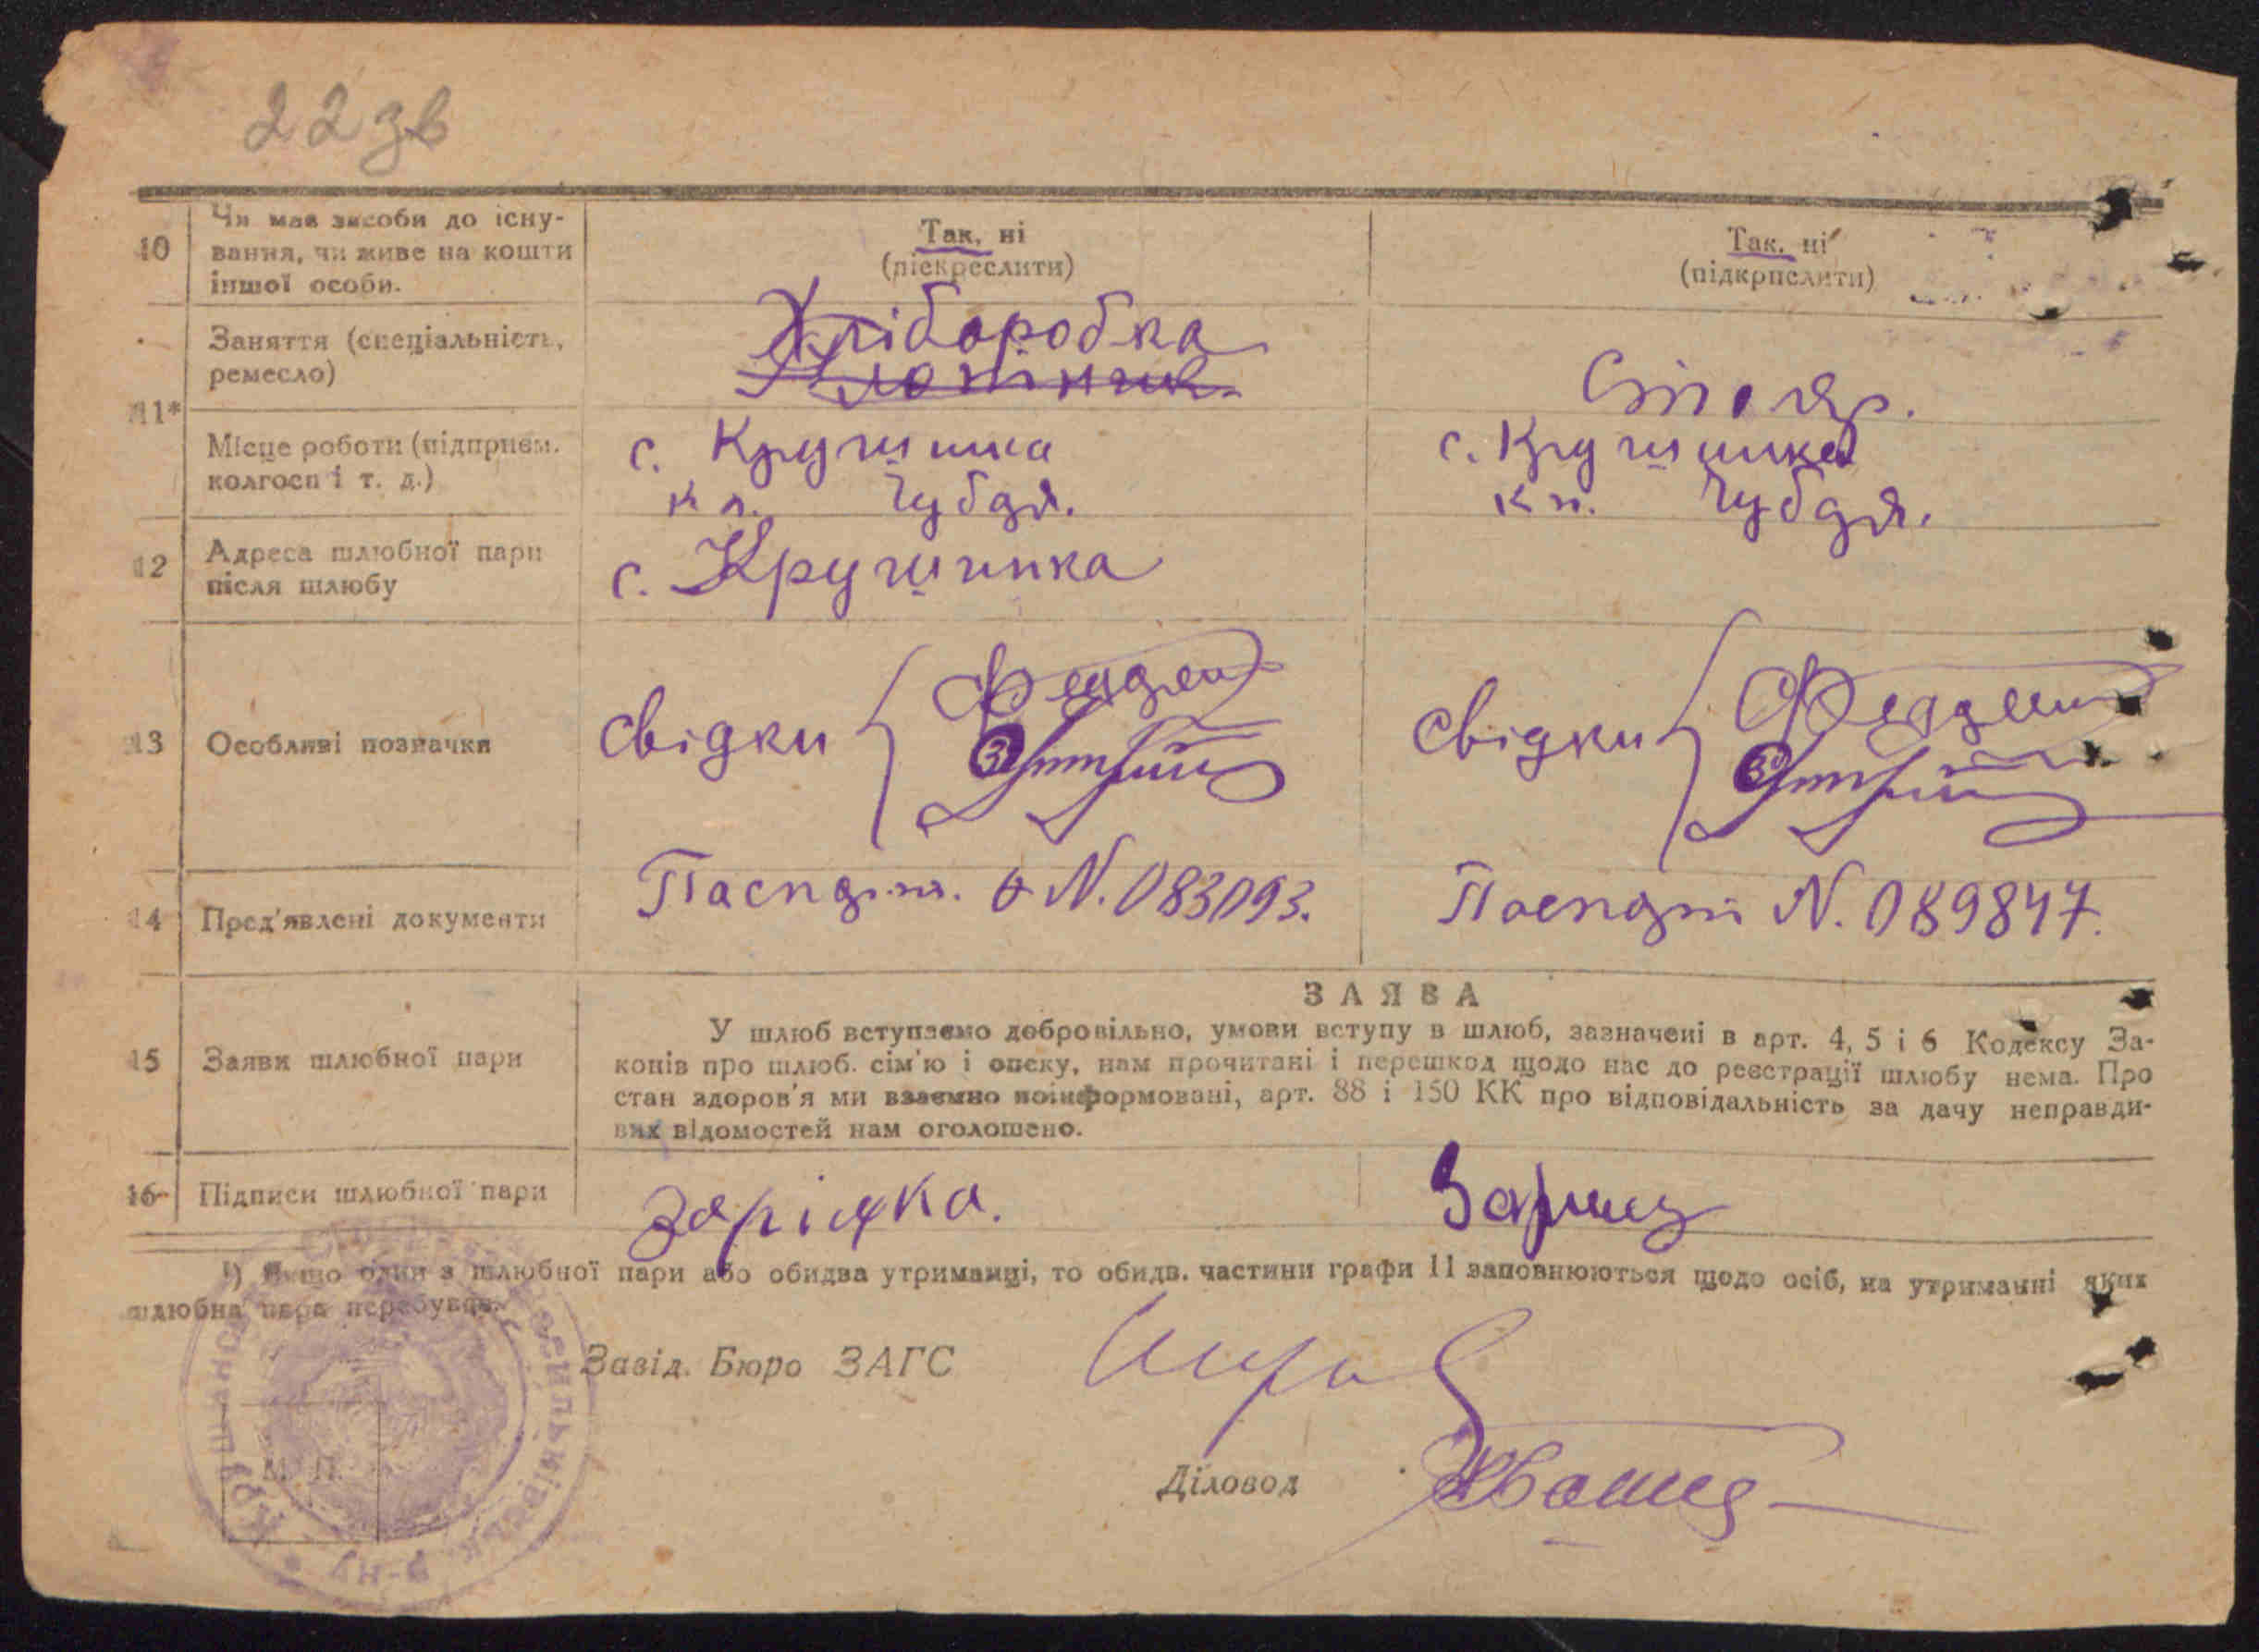 22 зв
10
Чи має засоби до існу-
вання, чи живе на кошти
іншої особи.
Так, ні
(піекреслити)
Так. ні
(підкрпслити)
11*
Заняття (спеціальність,
ремесло)
Хліборобка
Столяр.
Місце роботи (підприєм.
колгосп і т. д.)
с. Крушинка
кл. Чубаря.
с. Крушинка
кл. Чубаря.
12
Адреса шлюбної пари
після шлюбу
с. Крушинка
13
Особливі позначки
Свідки
Свідки
14
Пред'явлені документи
N. 083093.
N. 089847.
15
Заяви шлюбної пари
ЗАЯВА
У шлюб вступаємо добровільно, умови вступу в шлюб, зазначені в арт. 4, 5 і 6 Кодексу За-
конів про шлюб. сім'ю і опеку, нам прочитані і перешкод щодо нас до реєстрації шлюбу нема. Про
стан здоров'я ми взаємно поінформовані, арт. 88 і 150 КК про відповідальність за дачу неправди-
вих відомостей нам оголошено.
16
Підписи шлюбної пари
¹) Якщо один з шлюбної пари або обидва утриманці, то обидв. частини графи 11 заповнюються щодо осіб, на утриманні яких
шлюбна пара перебуває.
Завід. Бюро ЗАГС
М. П.
Діловод